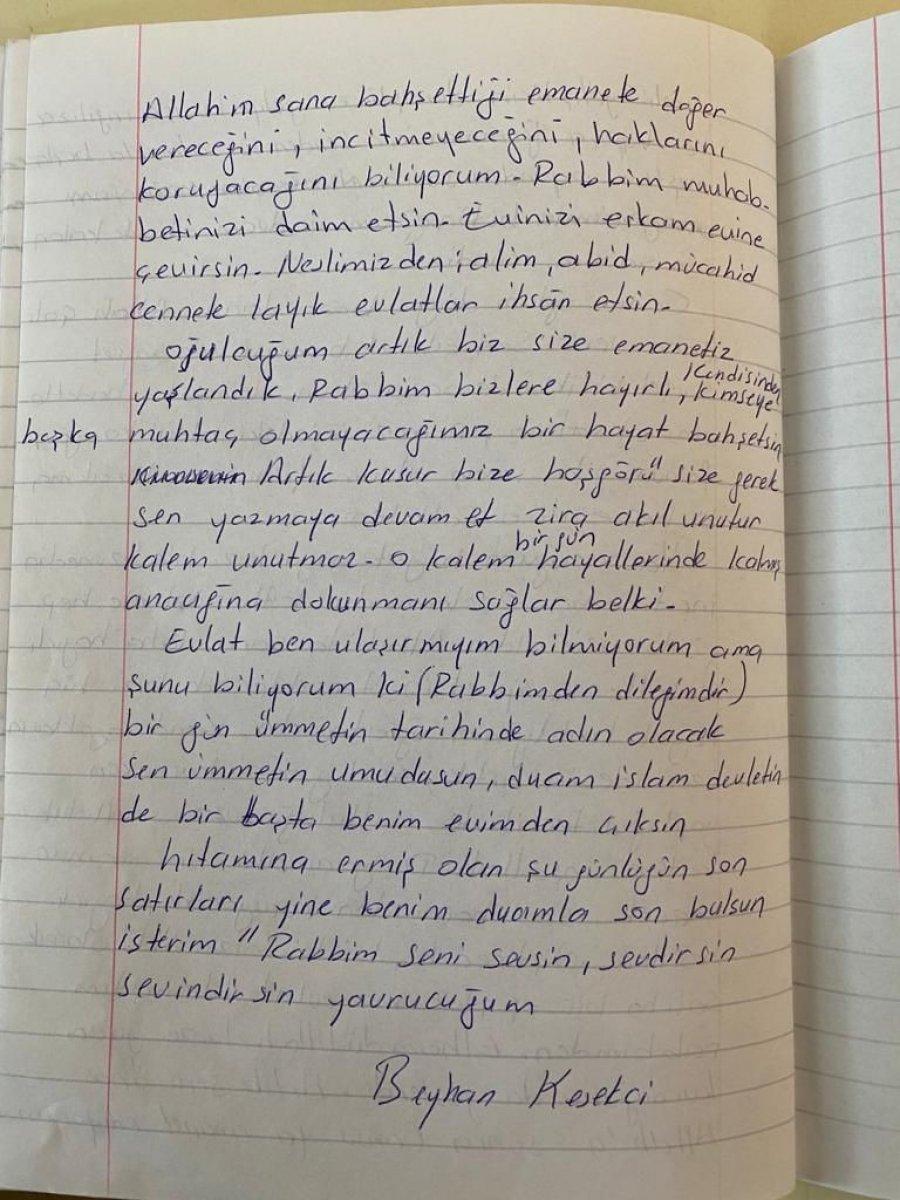 Allah'ın sana bahşettiği emanete değer
vereceğini, incitmeyeceğini, haklarını
koruyacağını biliyorum. Rabbim muhab-
betinizi daim etsin. Evinizi erkam evine
çevirsin. Neslimizden; alim, abid, mücahid
cennete layık evlatlar ihsân etsin.
oğulcuğum artık biz size emanetiz
yaşlandık, Rabbim bizlere hayırlı, Kendisinden kimseye
başka muhtaç olmayacağımız bir hayat bahşetsin
Artık kusur bize hoşgörü" size gerek
sen yazmaya devam et zira akıl unutur
kalem unutmaz. o kalem bir gün hayallerinde kalmış
anacığına dokunmanı sağlar belki.
Evlat ben ulaşırmıyım bilmiyorum ama
şunu biliyorum ki (Rabbimden dileğimdir)
bir gün ümmetin tarihinde adın olacak
sen ümmetin umudusun, duam islam devletin
de bir başta benim evimden çıksın
hıtamına ermiş olan şu günlüğün son
satırları yine benim duamla son bulsun
isterim "Rabbim seni sevsin, sevdirsin
sevindirsin yavrucuğum
Beyhan Kesekci